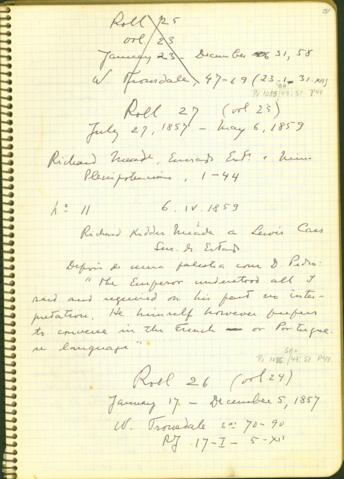 Roll 25
vol 23
January 23 - December 31, 58
W. Trousdale, 47-69 (23.1. 31.XII)
Roll 27 (vol 25)
July 27, 1857 - May 6, 1859
Richard Meade, Enviado Ext. e Min.
Plenipotenciario, 1-44
Nº 11 6. IV. 1859
Richard Kidder Meade a Lewis Cass
Sec. de Estado
Depois de uma palestra com D. Pedro:
"The Emperor understood all I
said and required on his part no inter-
pretation. He himself however prefers
to converse in the French - or Portugue-
se language"
Roll 26 (vol 24)
January 17 - December 5, 1857
W. Trousdale nº 70-90
RJ 17-I- 5-XII